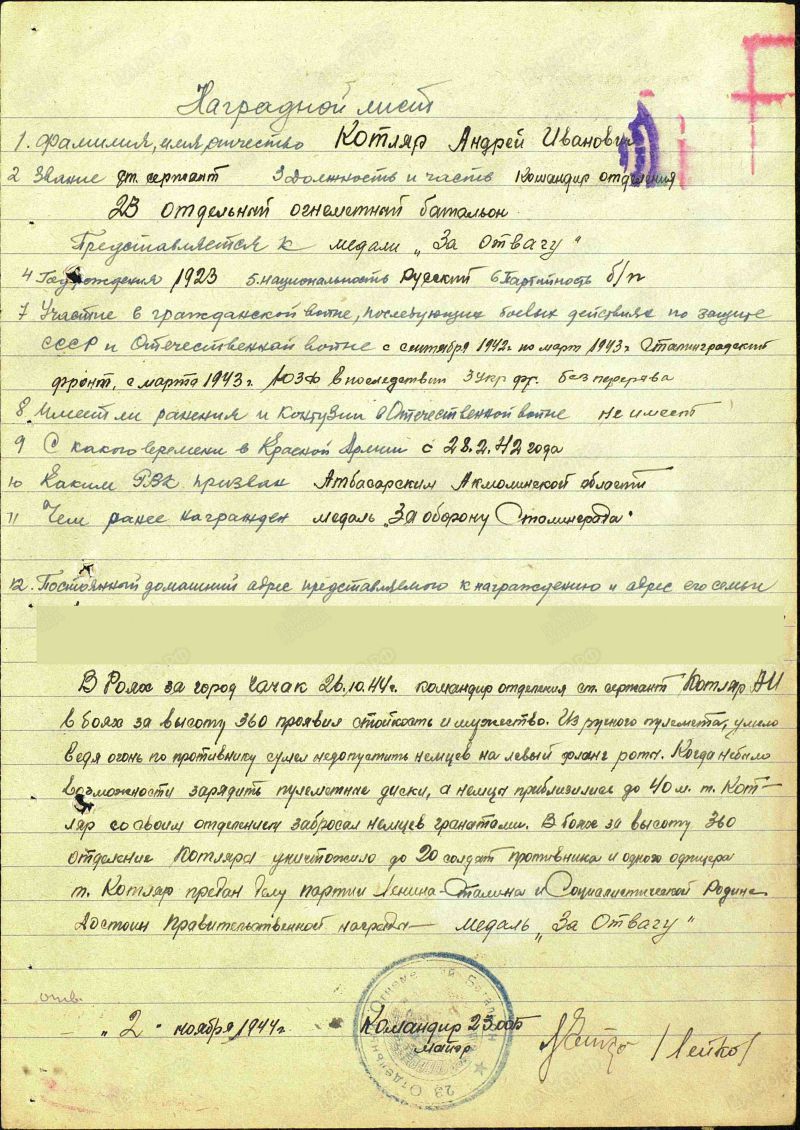 Наградной лист
1. Фамилия, имя, отчество Котляр Андрей Иванович
2 Звание ст. сержант 3 Должность и часть Командир отделения
23 отдельный огнеметный батальон
Представляется к медали „За Отвагу"
4 Год рождения 1923 5. национальность Русский 6 Партийность б/п
7 Участие в гражданской войне, последующих боевых действиях по защите
СССР и Отечественной войне с сентября 1942г по март 1943г Сталинградский
фронт, с марта 1943г. ЮЗФ впоследствии 3 Укр фр. без перерыва
8 Имеет ли ранения и контузии в Отечественной войне не имеет
9 С какого времени в Красной Армии с 28.2.42 года
10 Каким РВК призван Атбасарским Акмолинской области
11 Чем ранее награжден медаль „За оборону Сталинграда"
12. Постоянный домашний адрес представляемого к награждению и адрес его семьи
В боях за город Чачак 26.10.44г. командир отделения ст. сержант Котляр АИ
в боях за высоту 360 проявил стойкость и мужество. Из ручного пулемета, умело
ведя огонь по противнику сумел недопустить немцев на левый фланг роты. Когда небыло
возможности зарядить пулеметные диски, а немцы приблизились до 40 м. т. Кот-
ляр со своим отделением забросал немцев гранатами. В боях за высоту 360
отделение Котляра уничтожило до 20 солдат противника и одного офицера
т. Котляр предан делу партии Ленина-Сталина и Социалистической Родине.
Достоин Правительственной награды — медаль „За Отвагу"
отв.
„2" ноября 1944г. Командир 23 ооб
майор /Лейко/
23 Отдельный Огнеметный Батальон